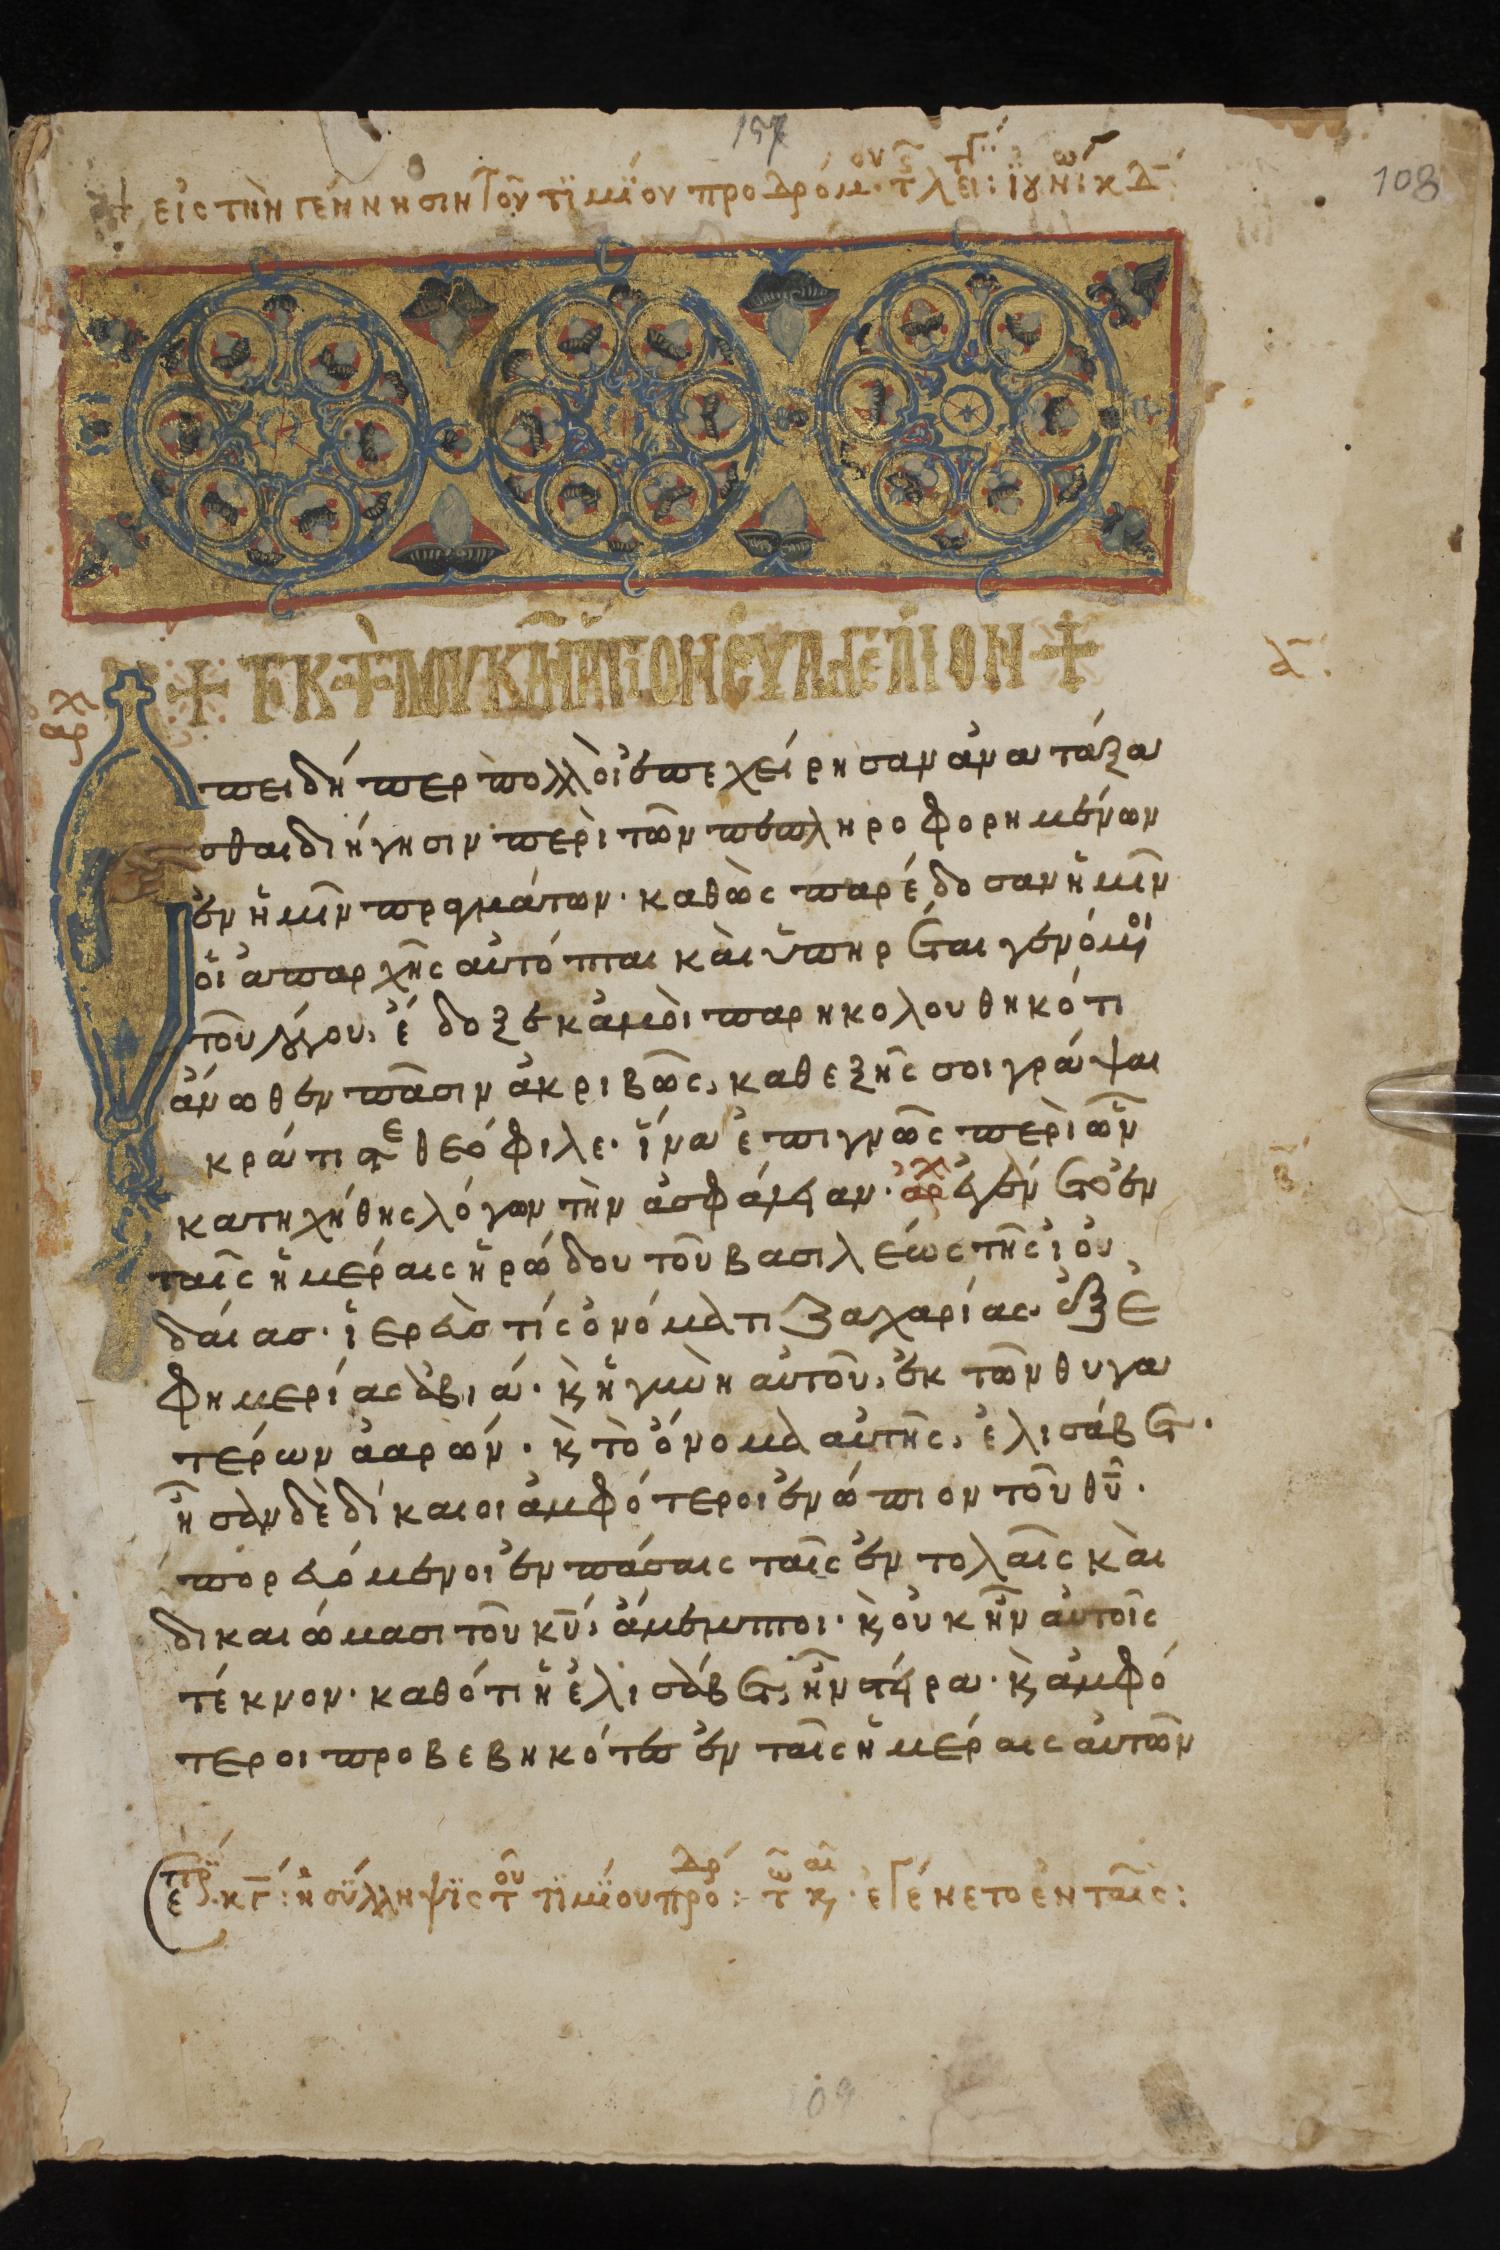 157
108
+ εἰς τὴν γέννησιν τοῦ τιμίου προδρόμ. τ λει: ἰουν: κδ
+ ΕΚ ΤΟΥ ΚΑΤᾺ ΛΟΥΚΑΝ ἉΓΙΟΝ ΕΥΑΓΓΕΛΙΟΝ +
α.
αρχ
πειδήπερ πολλοὶ ἐπεχείρησαν ἀνατάξα
σθαι διήγησιν περὶ τῶν πεπληροφορημένων
ἐν ἡμῖν πραγμάτων. καθὼς παρέδοσαν ἡμῖν
οἱ ἀπαρχῆς αὐτόπται καὶ ὑπηρέται γενόμοι
τοῦ λόγου, ἔδοξε κἀμοὶ παρηκολουθηκότι
ἄνωθεν πᾶσιν ἀκριβῶς, καθεξῆς σοι γράψαι
κράτιστε θεόφιλε. ἵνα ἐπιγνῶς περὶ ὧν
β
κατηχήθης λόγων τὴν ἀσφάλειαν. αρχ ἐγένετο ἐν
ταῖς ἡμέραις ἡρώδου τοῦ βασιλέως τῆς ἰου
δαίας. ἱερεύς τις ὀνόματι ζαχαρίας, ἐξ ἐ
φημερίας ἀβιά. κ ἡ γυνὴ αὐτοῦ, ἐκ τῶν θυγα
τέρων ἀαρών. κ τὸ ὄνομα αὐτῆς, ἐλισάβετ.
ἦσαν δὲ δίκαιοι ἀμφότεροι ἐνώπιον τοῦ θυ.
πορευόμενοι ἐν πάσαις ταῖς ἐντολαῖς καὶ
δικαιώμασι τοῦ κυ, ἄμεμπτοι. κ οὐκ ἦν αὐτοῖς
τέκνον. καθότι ἡ ἐλισάβετ, ἦν στεῖρα. κ ἀμφό
τεροι προβεβηκότες ἐν ταῖς ἡμέραις αὐτῶν
κγ: ἡ σύλληψις τοῦ τιμίου προδρ: τ κ. ἐγένετο ἐν ταῖς:
109